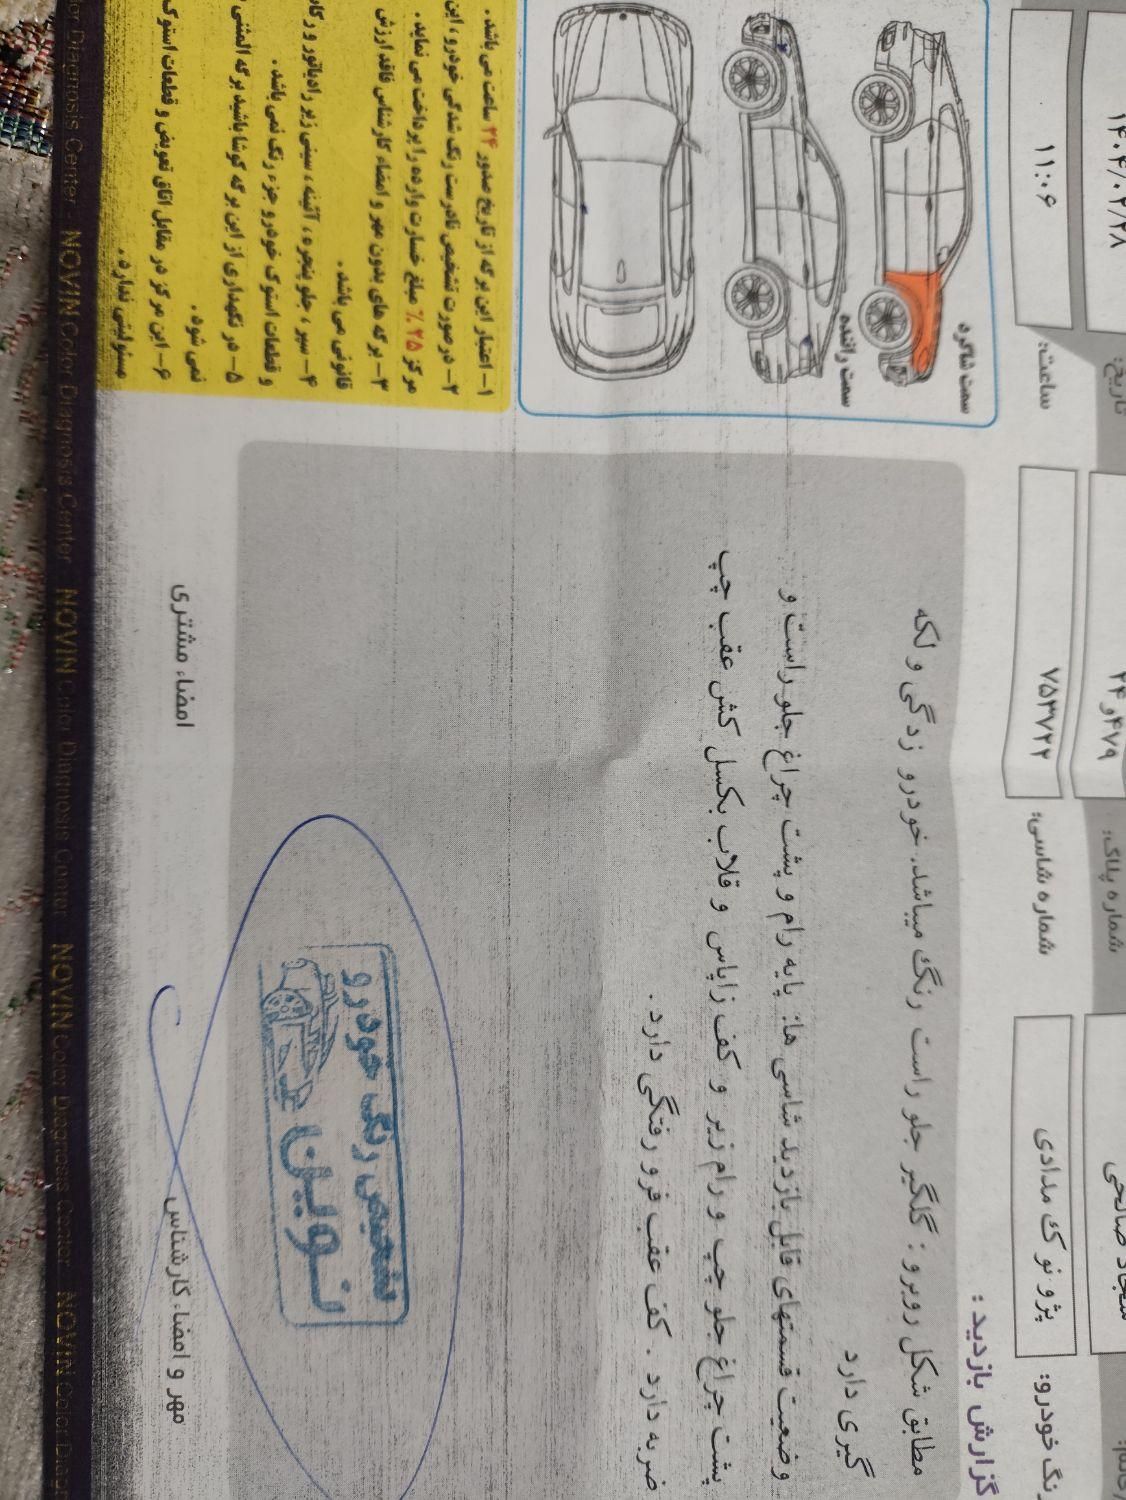 ۱۴۰۴/۰۲/۲۸
تاریخ:
۱۱:۰۶
ساعت:
شماره پلاک:
۷۵۳۷۲۲
شماره شاسی:
سجاد صالحی
پژو نوک مدادی
رنگ خودرو:
گزارش بازدید :
مطابق شکل روبرو : گلگیر جلو راست رنگ میباشد. خودرو زدگی و لکه
گیری دارد
وضعیت قسمتهای قابل بازدید شاسی ها: پایه رام و پشت چراغ جلو راست و
پشت چراغ جلو چپ و رام زیر و کف زاپاس و قلاب بکسل کش عقب چپ
ضربه دارد . کف عقب فرو رفتگی دارد .
سمت شاگرد
سمت راننده
۱- اعتبار این برگه از تاریخ صدور ۲۴ ساعت می باشد .
۲- در صورت تشخیص نادرست رنگ شدگی خودرو ، این
مرکز ۲۵ % مبلغ خسارت وارده را پرداخت می نماید .
۳- برگه های بدون مهر و امضاء کارشناس فاقد ارزش
قانونی می باشد .
۴- سپر ، جلو پنجره ، آئینه ، سینی زیر رادیاتور و رکاب
و قطعات استوک خودرو جزء رنگ نمی باشد .
۵- در نگهداری از این برگه کوشا باشید برگه المثنی
نمی شود .
۶- این مرکز در مقابل اتاق تعویض و قطعات استوک
مسئولیتی ندارد .
امضاء مشتری
مهر و امضاء کارشناس
تشخیص رنگ خودرو
نوین
Color Diagnosis Center - NOVIN Color Diagnosis Center NOVIN Color Diagnosis Center NOVIN Color Diagnosis Center NOVIN Color